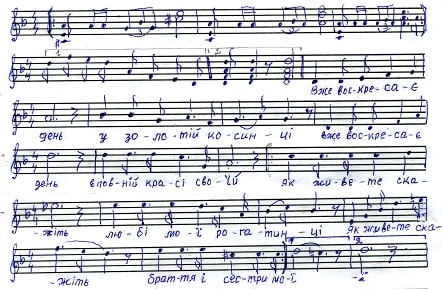 Вже вос-кре-са-є
день у зо-ло-тій ко-син-ці вже вос-кре-са-є
день в пов-ній кра-сі сво-їй як жи-ве-те ска-
-жіть лю-бі мо-ї ро-га-тин-ці як живе-те ска-
-жіть брат-тя і сес-три мо-ї -ї